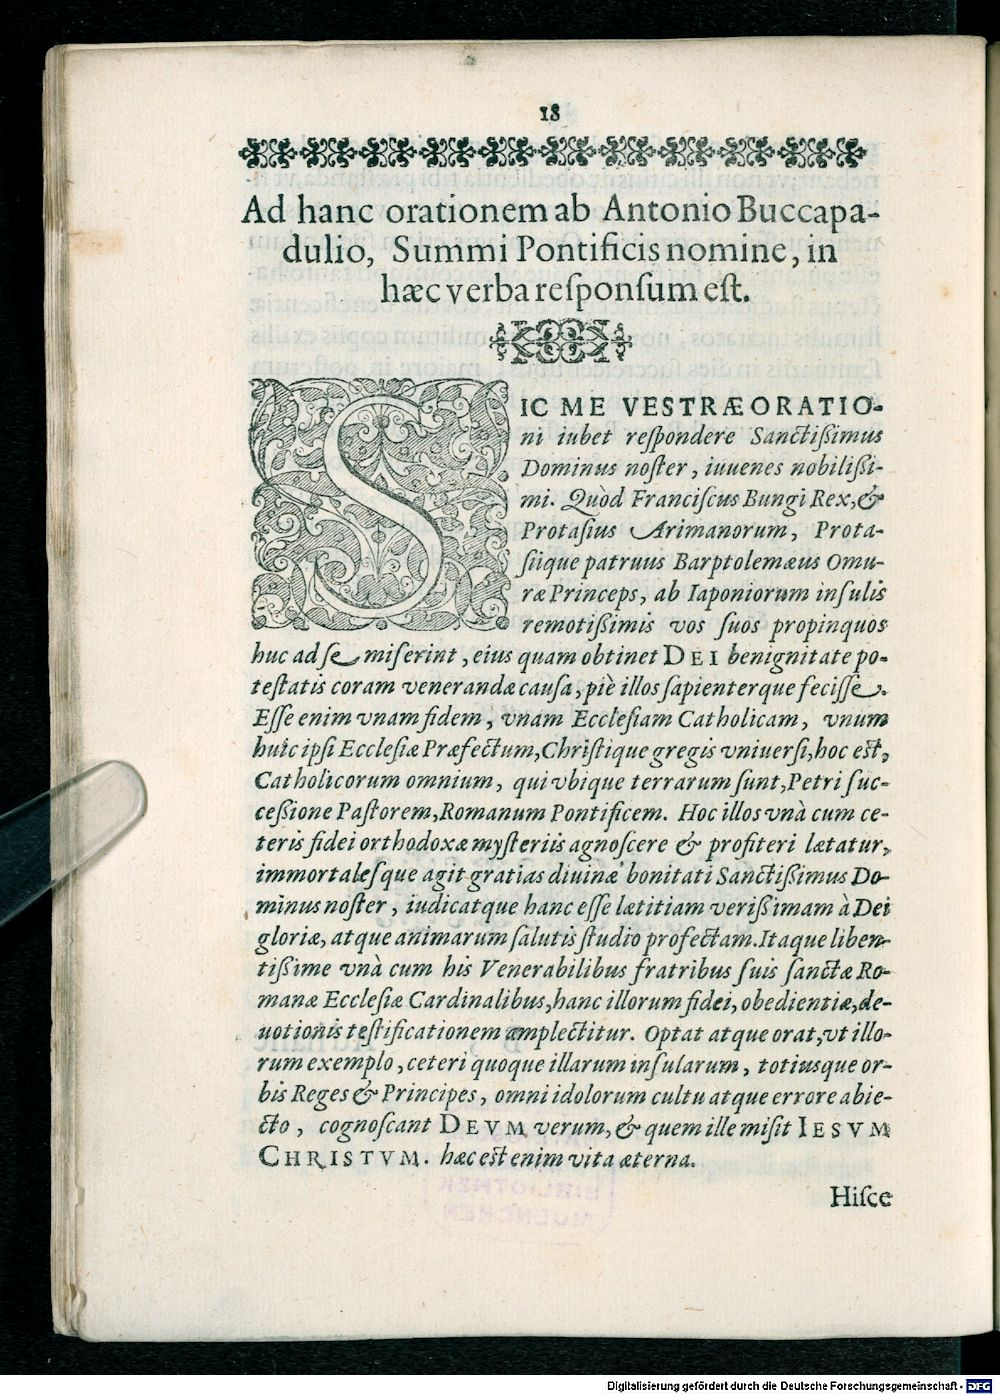 18
Ad hanc orationem ab Antonio Buccapa-
dulio, Summi Pontificis nomine, in
hæc verba reſponſum eſt.
SIC ME VESTRÆ ORATIO-
ni iubet reſpondere Sanctißimus
Dominus noſter, iuuenes nobilißi-
mi. Quòd Franciſcus Bungi Rex, &
Protaſius Arimanorum, Prota-
ſiique patruus Barptolemæus Omu-
ræ Princeps, ab Iaponiorum inſulis
remotißimis vos ſuos propinquos
huc ad ſe miſerint, eius quam obtinet DEI benignitate po-
teſtatis coram venerandæ cauſa, piè illos ſapienterque feciſſe.
Eſſe enim vnam fidem, vnam Eccleſiam Catholicam, vnum
huic ipſi Eccleſiæ Præfectum, Chriſtique gregis vniuerſi, hoc eſt,
Catholicorum omnium, qui vbique terrarum ſunt, Petri ſuc-
ceßione Paſtorem, Romanum Pontificem. Hoc illos vnà cum ce-
teris fidei orthodoxæ myſteriis agnoſcere & profiteri lætatur,
immortaleſque agit gratias diuinæ bonitati Sanctißimus Do-
minus noſter, iudicatque hanc eſſe lætitiam verißimam à Dei
gloriæ, atque animarum ſalutis ſtudio profectam. Itaque liben-
tißime vnà cum his Venerabilibus fratribus ſuis ſanctæ Ro-
manæ Eccleſiæ Cardinalibus, hanc illorum fidei, obedientiæ, de-
uotionis teſtificationem amplectitur. Optat atque orat, vt illo-
rum exemplo, ceteri quoque illarum inſularum, totiusque or-
bis Reges & Principes, omni idolorum cultu atque errore abie-
cto, cognoſcant DEVM verum, & quem ille miſit IESVM
CHRISTVM. hæc eſt enim vita æterna.
Hiſce
Digitalisierung gefördert durch die Deutsche Forschungsgemeinschaft - DFG